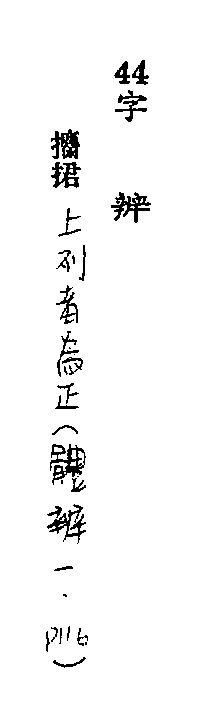 44字　辨
攟捃 上列者為正(體辨一.p116)